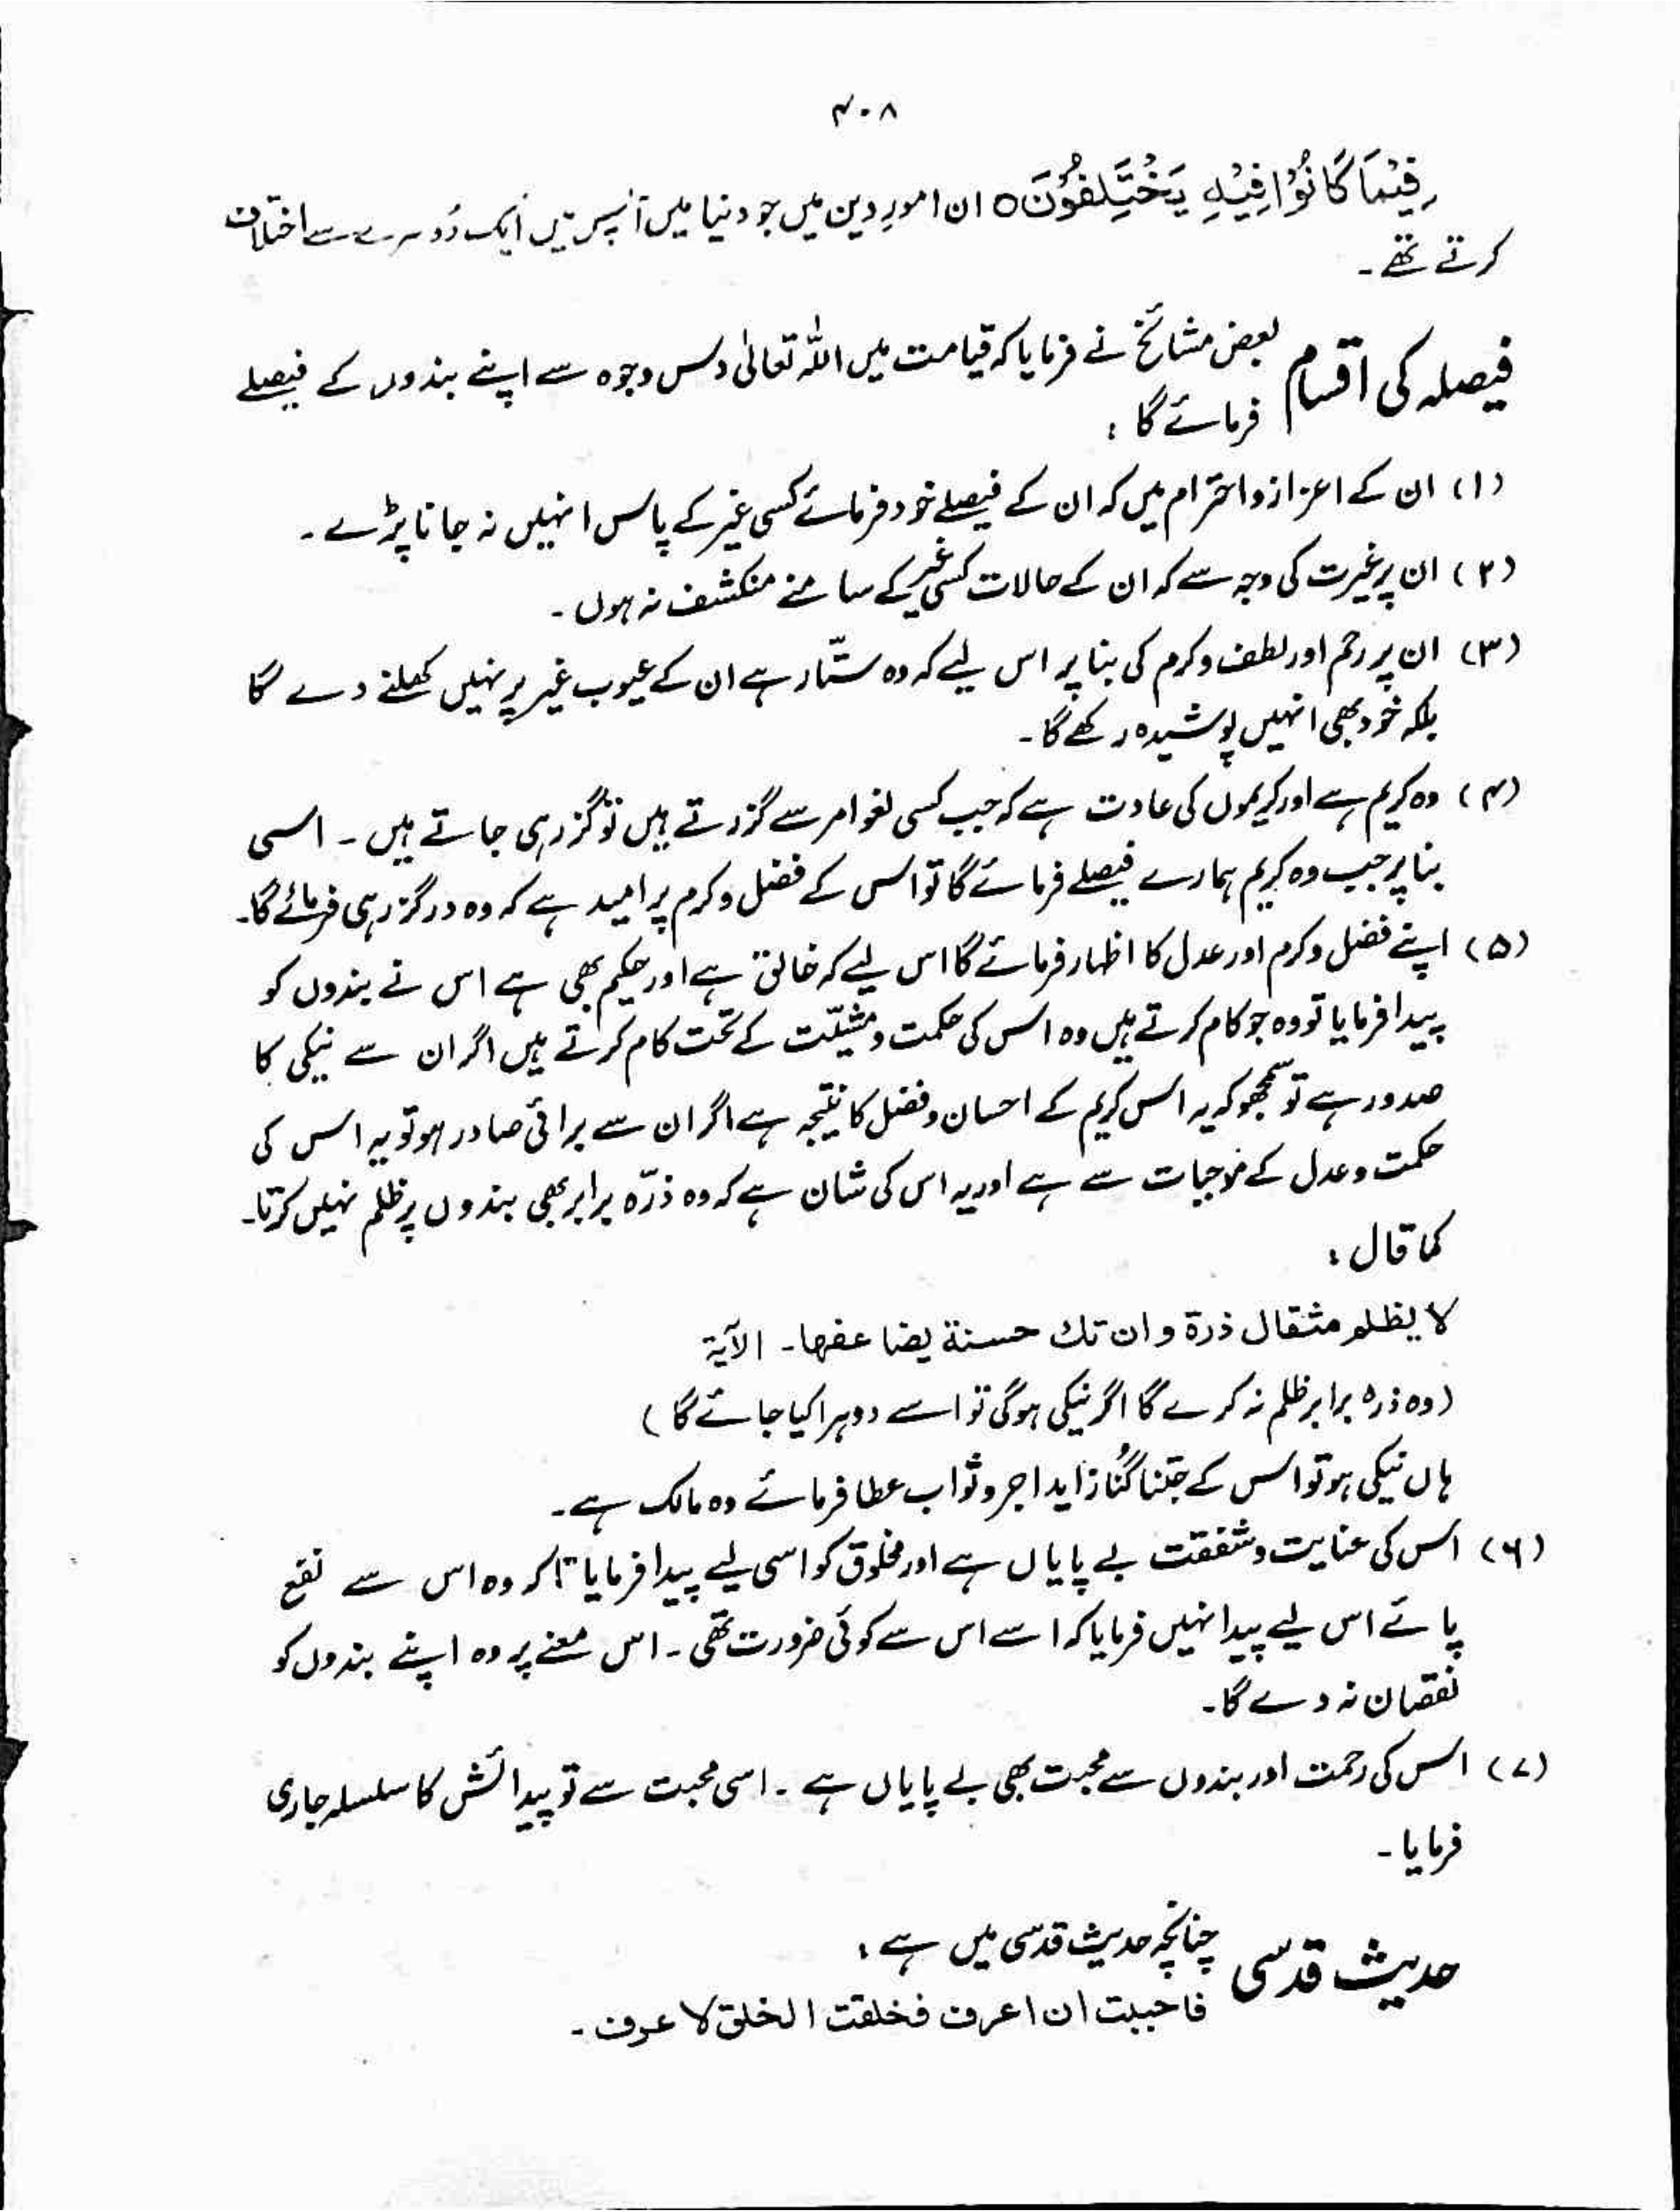 ۴۰۸
فِيْمَا كَانُوْا فِيْهِ يَخْتَلِفُوْنَ○ ان امورِ دین میں جو دنیا میں آپس میں ایک دُوسرے سے اختلاف
کرتے تھے۔
فیصلہ کی اقسام بعض مشائخ نے فرمایا کہ قیامت میں اللہ تعالیٰ دس وجوہ سے اپنے بندوں کے فیصلے
فرمائے گا :
(۱) ان کے اعزاز و احترام میں کہ ان کے فیصلے خود فرمائے کسی غیر کے پاس انہیں نہ جانا پڑے۔
(۲) ان پر غیرت کی وجہ سے کہ ان کے حالات کسی غیر کے سامنے منکشف نہ ہوں۔
(۳) ان پر رحم اور لطف و کرم کی بنا پر اس لیے کہ وہ ستّار ہے ان کے عیوب غیر پر نہیں کھلنے دے گا
بلکہ خود بھی انہیں پوشیدہ رکھے گا۔
(۴) وہ کریم ہے اور کریموں کی عادت ہے کہ جب کسی لغو امر سے گزرتے ہیں تو گزر ہی جاتے ہیں۔ اسی
بنا پر جب وہ کریم ہمارے فیصلے فرمائے گا تو اس کے فضل و کرم پر امید ہے کہ وہ درگزر ہی فرمائے گا۔
(۵) اپنے فضل و کرم اور عدل کا اظہار فرمائے گا اس لیے کہ خالق ہے اور حکیم بھی ہے اس نے بندوں کو
پیدا فرمایا تو وہ جو کام کرتے ہیں وہ اس کی حکمت و مشیّت کے تحت کام کرتے ہیں اگر ان سے نیکی کا
صدور ہے تو سمجھو کہ یہ اس کریم کے احسان و فضل کا نتیجہ ہے اگر ان سے برائی صادر ہو تو یہ اس کی
حکمت و عدل کے موجبات سے ہے اور یہ اس کی شان ہے کہ وہ ذرّہ برابر بھی بندوں پر ظلم نہیں کرتا۔
کما قال :
لا یظلم مثقال ذرة و ان تك حسنة یضاعفها۔ الآیة
(وہ ذرہ برابر ظلم نہ کرے گا اگر نیکی ہوگی تو اسے دوہرا کیا جائے گا)
ہاں نیکی ہو تو اس کے جتنا گُنا زاید اجر و ثواب عطا فرمائے وہ مالک ہے۔
(۶) اس کی عنایت و شفقت بے پایاں ہے اور مخلوق کو اسی لیے پیدا فرمایا تاکہ وہ اس سے نفع
پائے اس لیے پیدا نہیں فرمایا کہ اسے اس سے کوئی ضرورت تھی۔ اس معنے پر وہ اپنے بندوں کو
نقصان نہ دے گا۔
(۷) اس کی رحمت اور بندوں سے محبت بھی بے پایاں ہے۔ اسی محبت سے تو پیدائش کا سلسلہ جاری
فرمایا۔
حدیث قدسی چنانچہ حدیث قدسی میں ہے :
فاحببت ان اعرف فخلقت الخلق لاعرف۔